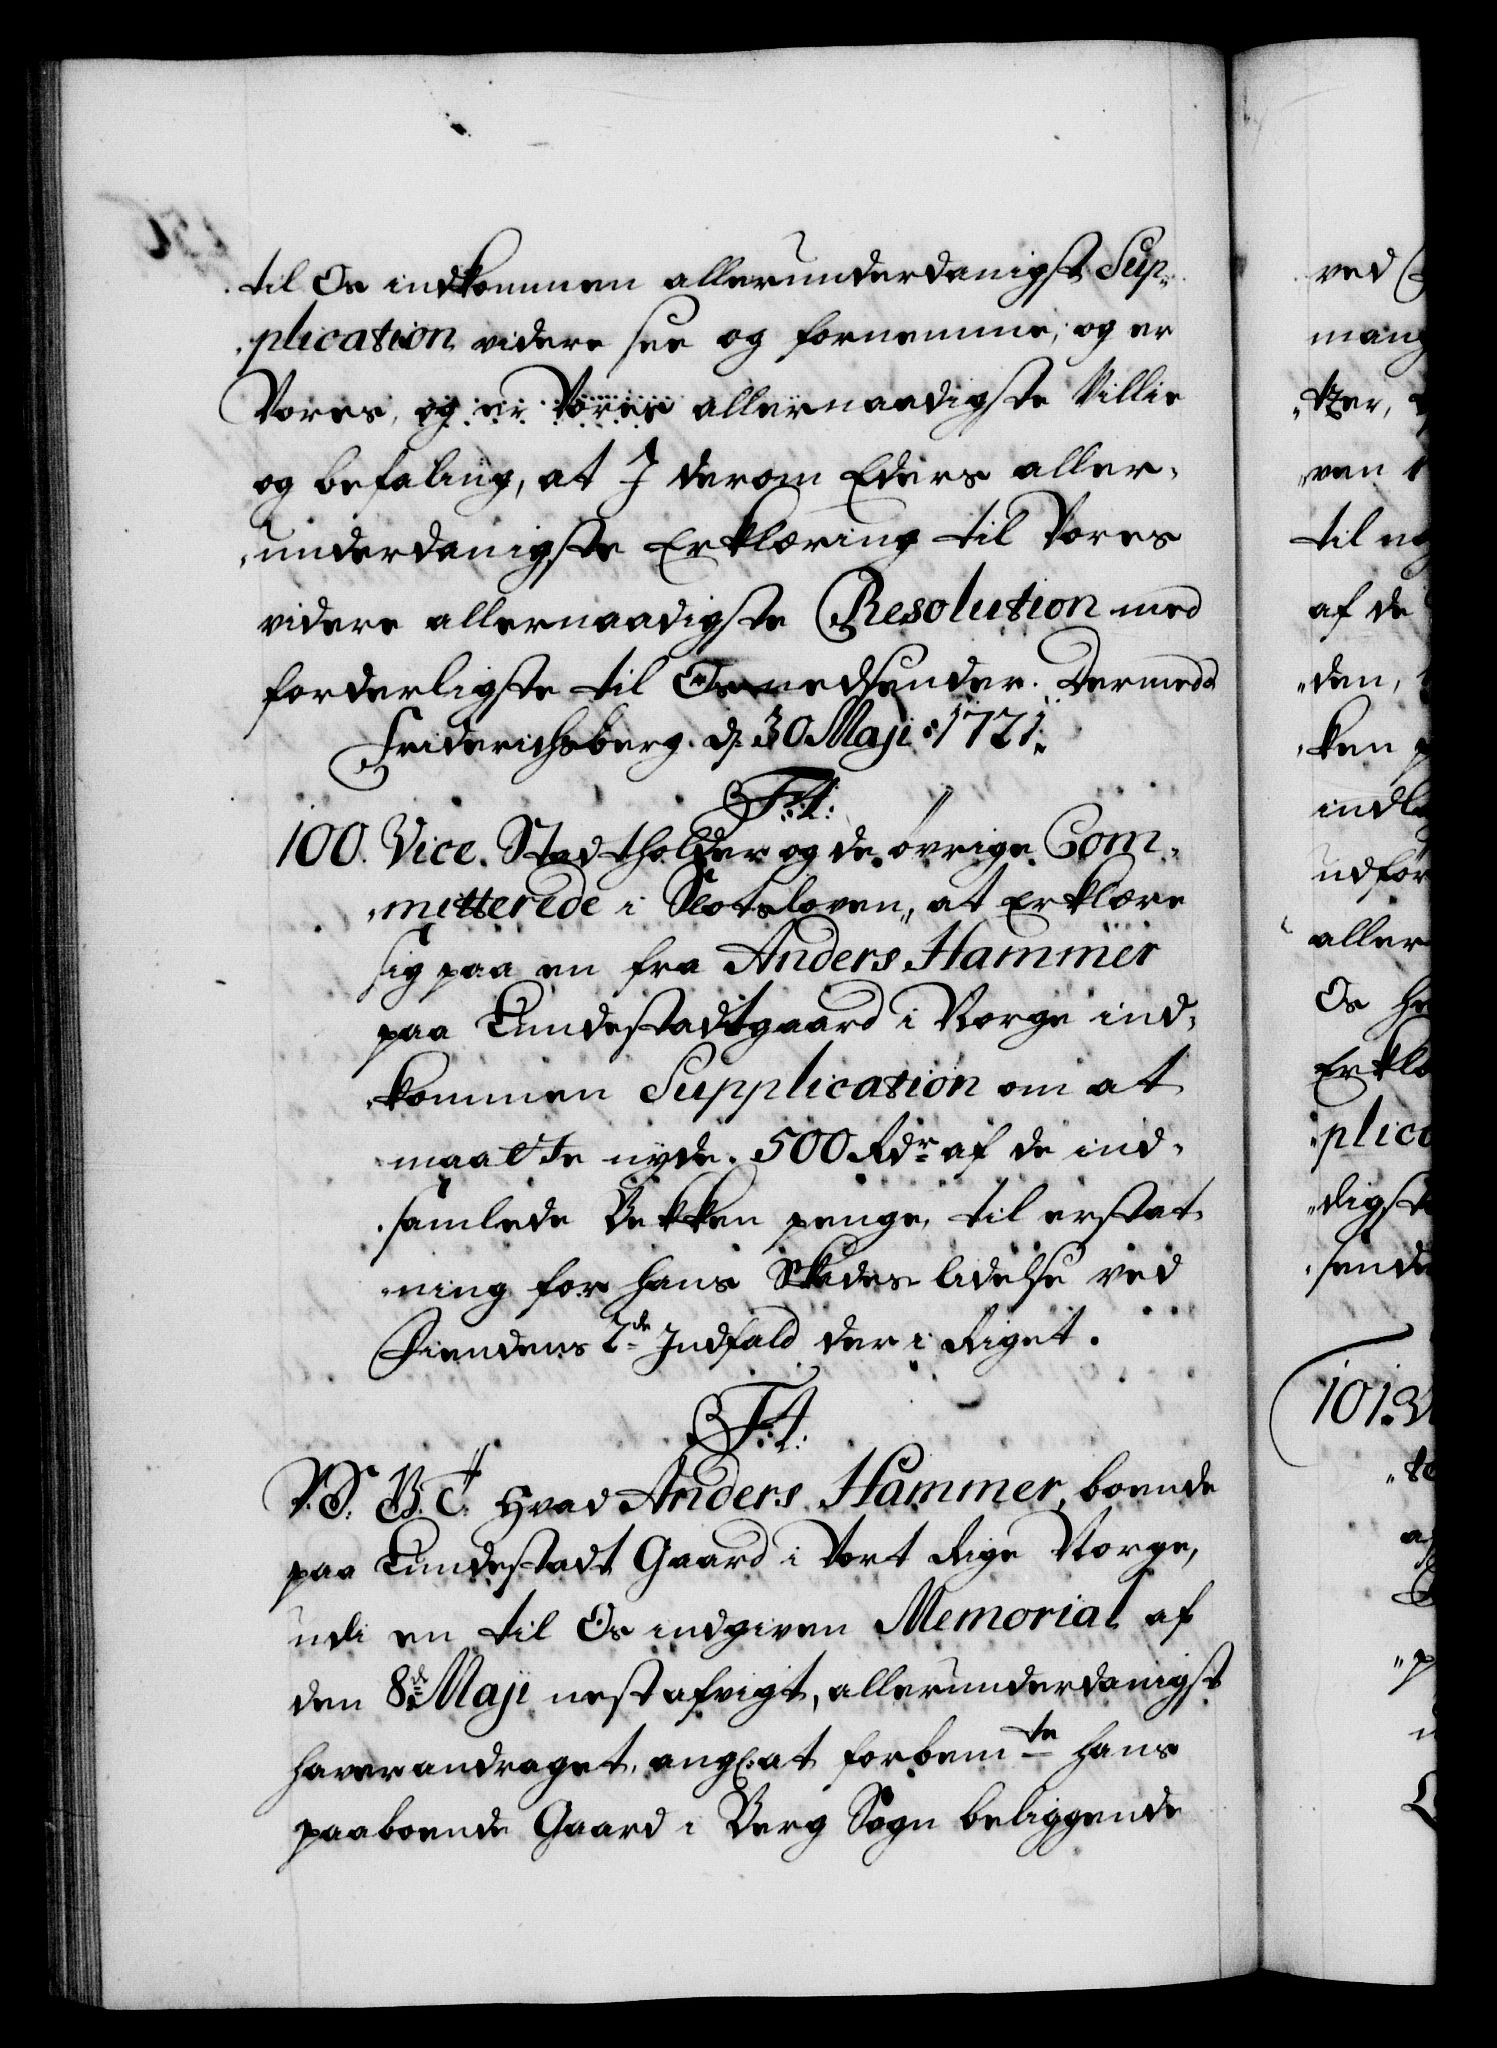 til Os indkommen allerunderdanigst Sup-
plication videre see og fornemme, og er
Vores, og er Vores allernaadigste Villie
og befaling, at I derom Eders aller-
underdanigste Erklæring til Vores
videre allernaadigste Resolution med
forderligste til Os nedsender. Dermed
Friderichsberg. d. 30 Maji 1721.
F:4:
100. Vice. Stadtholder og de øvrige Com-
mitterede i Slotsloven, at Erklære
sig paa en fra Anders Hammer
paa Tundestadtgaard i Norge ind-
kommen Supplication om at
maatte nyde. 500 Rdr af de ind-
samlede Bekken penge, til erstat-
ning for hans Skades lidelse ved
Fiendens 2de Indfald der i Riget.
F:4:
V. G. T. Hvad Anders Hammer, boende
paa Tundestadt Gaard i Vort Rige Norge,
udi en til Os indgiven Memorial af
den 8de Maji nest afvigt, allerunderdanigst
haver andraget, angl: at forbemte hans
paaboende Gaard i Berg Sogn beliggende
ved
mang
til
af de
den,
ken
indl
udfør
aller
Os
Erklæ
plica
digst
sende
101.